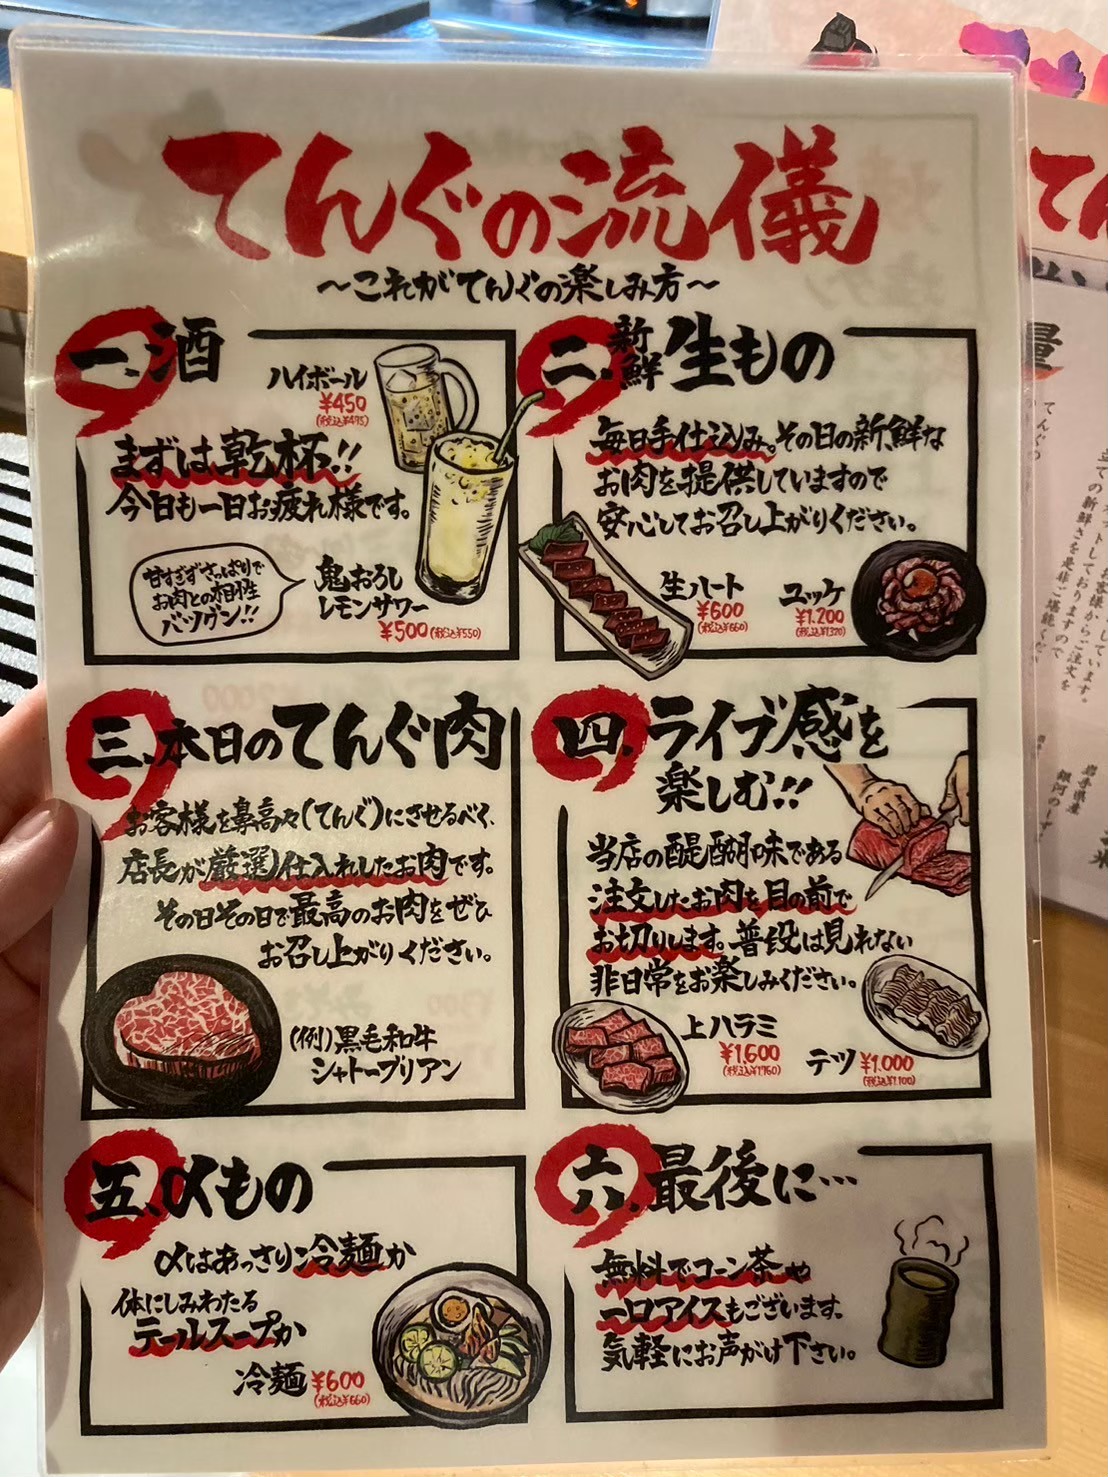 てんぐの流儀
〜これがてんぐの楽しみ方〜
一.酒
ハイボール
¥450
(税込¥495)
まずは乾杯!!
今日も一日お疲れ様です。
甘すぎずさっぱりで
お肉との相性
バツグン!!
鬼おろし
レモンサワー
¥500(税込¥550)
二.新鮮生もの
毎日手仕込み。その日の新鮮な
お肉を提供していますので
安心してお召し上がりください。
生ハート
¥600
(税込¥660)
ユッケ
¥1.200
(税込¥1320)
三.本日のてんぐ肉
お客様を鼻高々(てんぐ)にさせるべく、
店長が厳選仕入れしたお肉です。
その日その日で最高のお肉をぜひ
お召し上がりください。
(例)黒毛和牛
シャトーブリアン
四.ライブ感を
楽しむ!!
当店の醍醐味である
注文したお肉を目の前で
お切りします。普段は見れない
非日常をお楽しみください。
上ハラミ
¥1.600
(税込¥1760)
テツ ¥1.000
(税込¥1.100)
五.〆もの
〆はあっさり冷麺か
体にしみわたる
テールスープか
冷麺 ¥600
(税込¥660)
六.最後に…
無料でコーン茶や
一口アイスもございます。
気軽にお声がけ下さい。
量
てんぐの
岩手県産
銀河のしずく
米